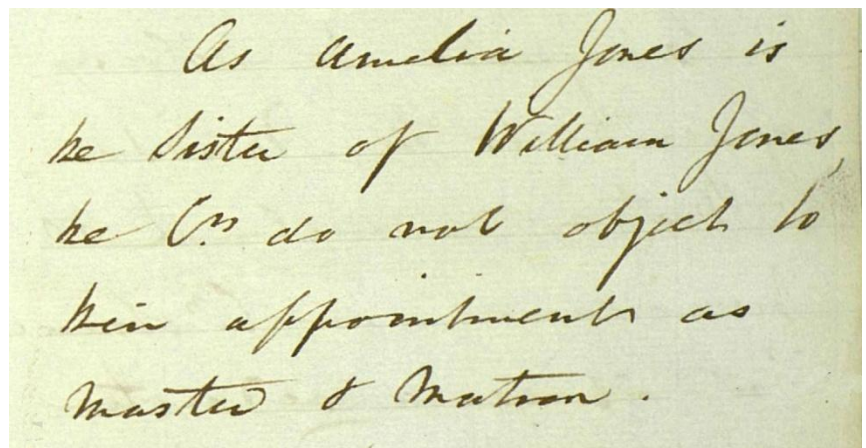 As Amelia Jones is
the Sister of William Jones,
the Crs do not object to
their appointment as
Master & Matron.